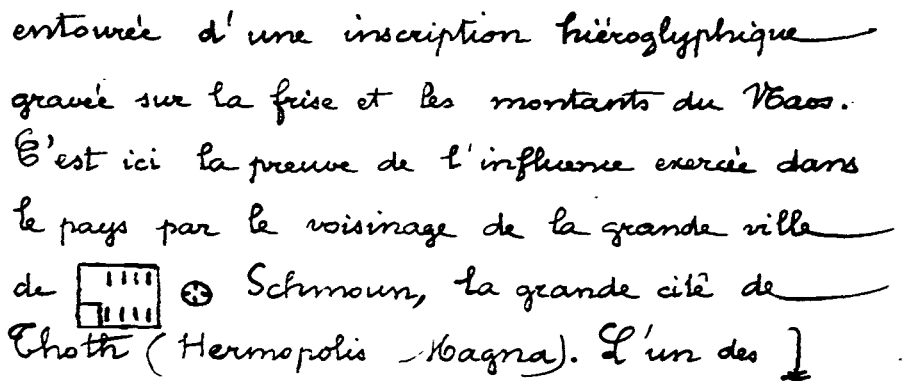 entourée d'une inscription hiéroglyphique
gravée sur la frise et les montants du Naos.
C'est ici la preuve de l'influence exercée dans
le pays par le voisinage de la grande ville
de Schmoun, la grande cité de
Thoth (Hermopolis Magna). L'un des